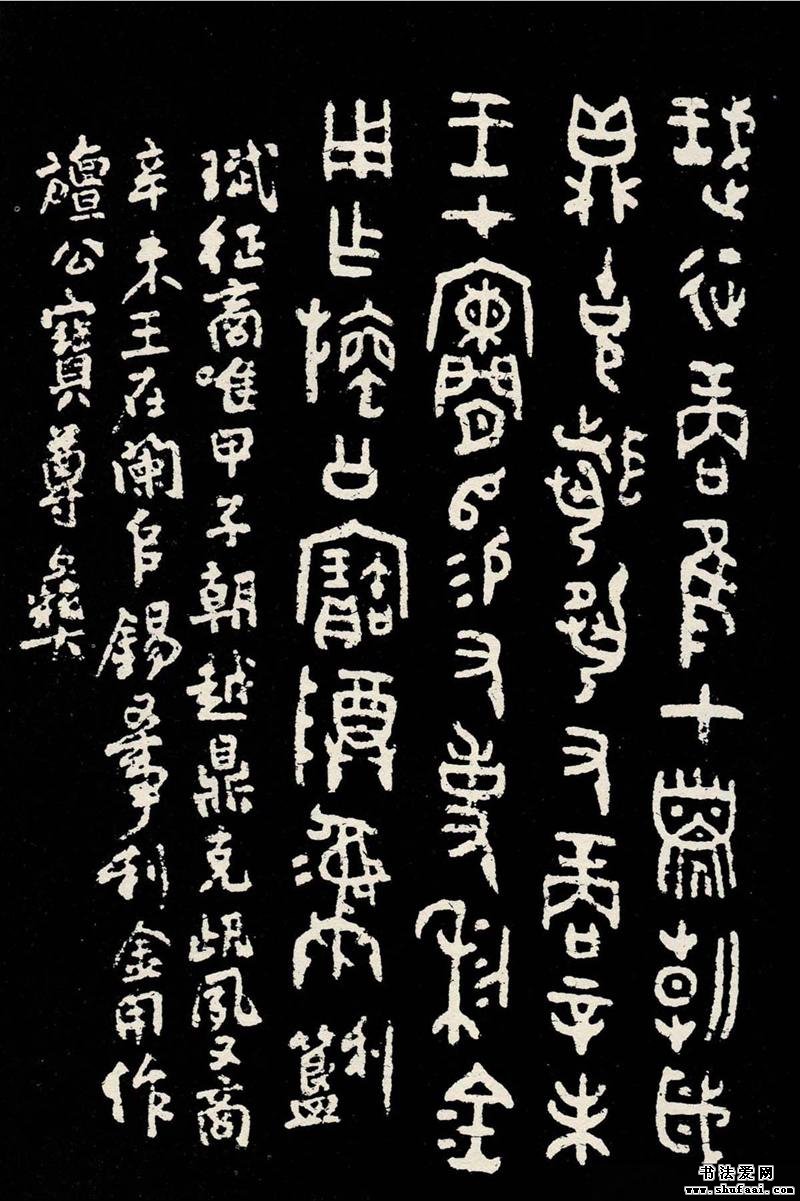 珷征商隹甲子朝歲
鼎克夙又商辛未
王才闌𠂤易又事利金
用乍旜公寶尊彝 利簋
珷征商唯甲子朝越鼎克夙又商
辛未王在闌𠂤錫又事利金用作
旜公寶尊彝
书法爱网
www.shufaai.com